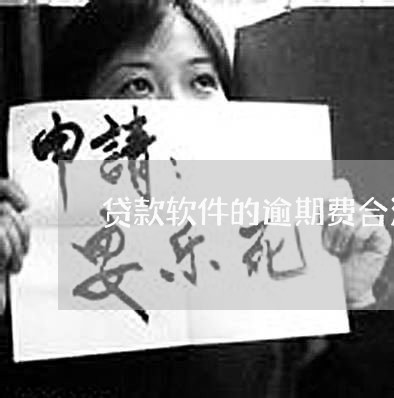 申請：
贷款软件的逾期费合
安乐死